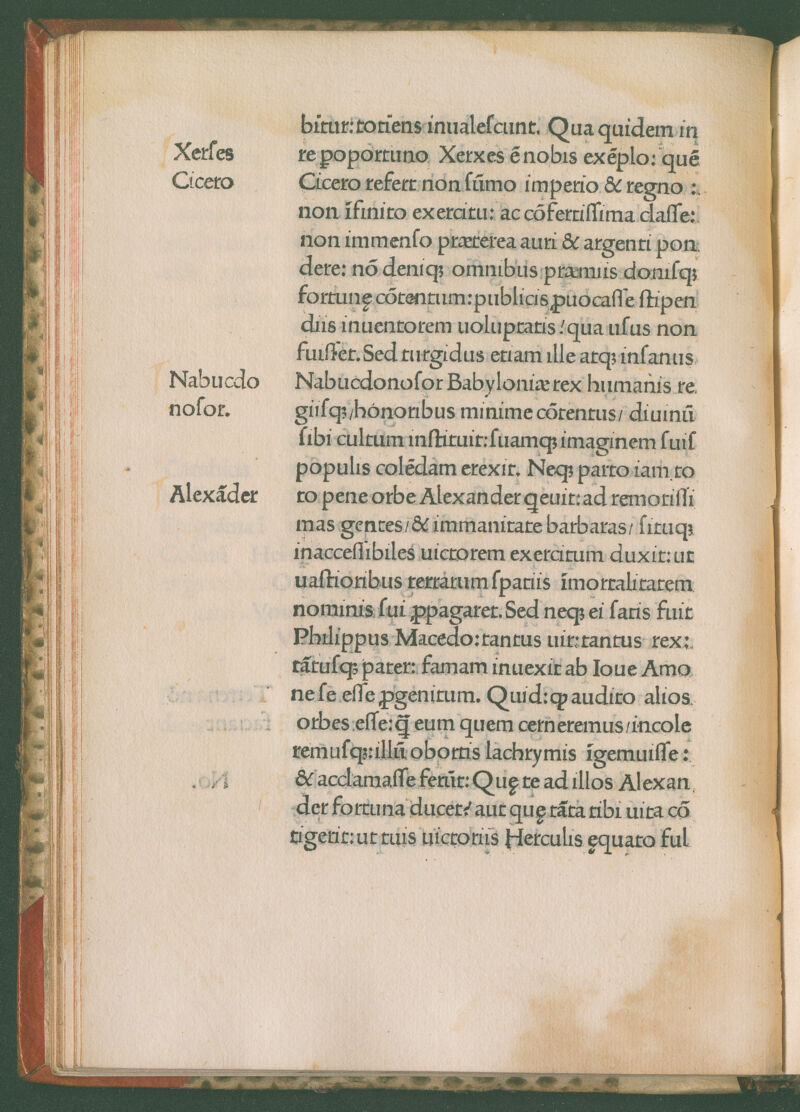 bitur: totiens inualeſcunt. Qua quidem in
Xerſes
re ꝑoportuno Xerxes ē nobis exēplo: quē
Cicero
Cicero refert non ſūmo imperio & regno :
non īfinito exercitu: ac cōfertiſſima claſſe:
non immenſo præterea auri & argenti pon
dere: nō deniqꝫ omnibus præmiis doniſqꝫ
fortunę cōtentum: publicis ꝓuocaſſe ſtipen
diis inuentorem uoluptatis? qua uſus non
fuiſſet. Sed turgidus etiam ille atqꝫ inſanus
Nabucdo
Nabucdonoſor Babyloniæ rex humanis re
noſor.
giiſqꝫ / honoribus minime cōtentus / diuinū
ſibi cultum inſtituit: ſuamqꝫ imaginem ſuiſ
populis colēdam erexit. Neqꝫ parto iam to
Alexāder
to pene orbe Alexander qeuit: ad remotiſſi
mas gentes / & immanitate barbaras / ſituqꝫ
inacceſſibiles uictorem exercitum duxit: ut
uaſtioribus terrarum ſpatiis īmortalitatem
nominis ſui ꝓpagaret. Sed neqꝫ ei ſatis fuit
Philippus Macedo: tantus uir: tantus rex:
tātuſqꝫ pater: famam inuexit ab Ioue Amo
ne ſe eſſe ꝓgenitum. Quid: ꝙ audito alios
orbes eſſe: q̄ eum quem cerneremus / incole
remuſqꝫ: illū obortis lachrymis īgemuiſſe :
& acclamaſſe ferūt: Quę te ad illos Alexan
der fortuna ducet? aut quę tāta tibi uita cō
tigerit: ut tuis uictoriis Herculis ęquato ful